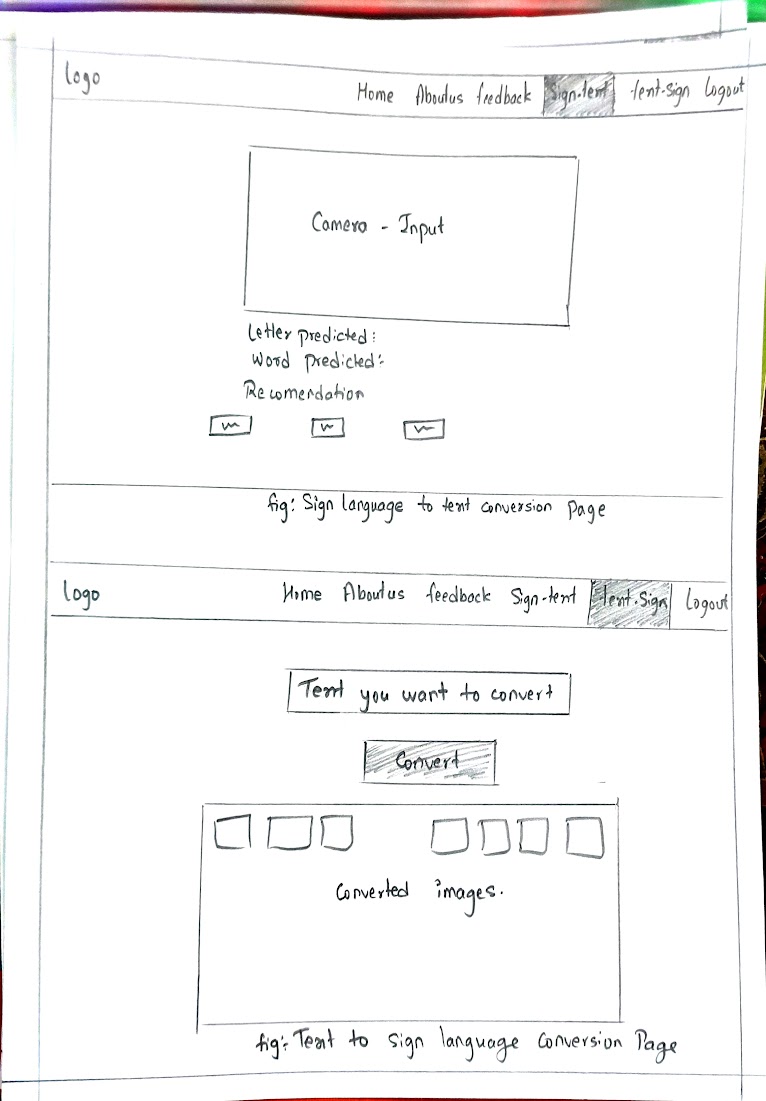 Logo
Home Aboutus feedback Sign-text text-sign Logout
Camera - Input
Letter predicted:
Word predicted:
Recomendation
fig: Sign language to text conversion Page
Logo
Home Aboutus feedback Sign-text text-Sign Logout
Text you want to convert
Convert
Converted images.
fig: Text to sign language conversion Page